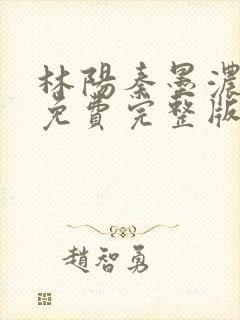 林陽秦墨濃
免費完整版
趙智勇